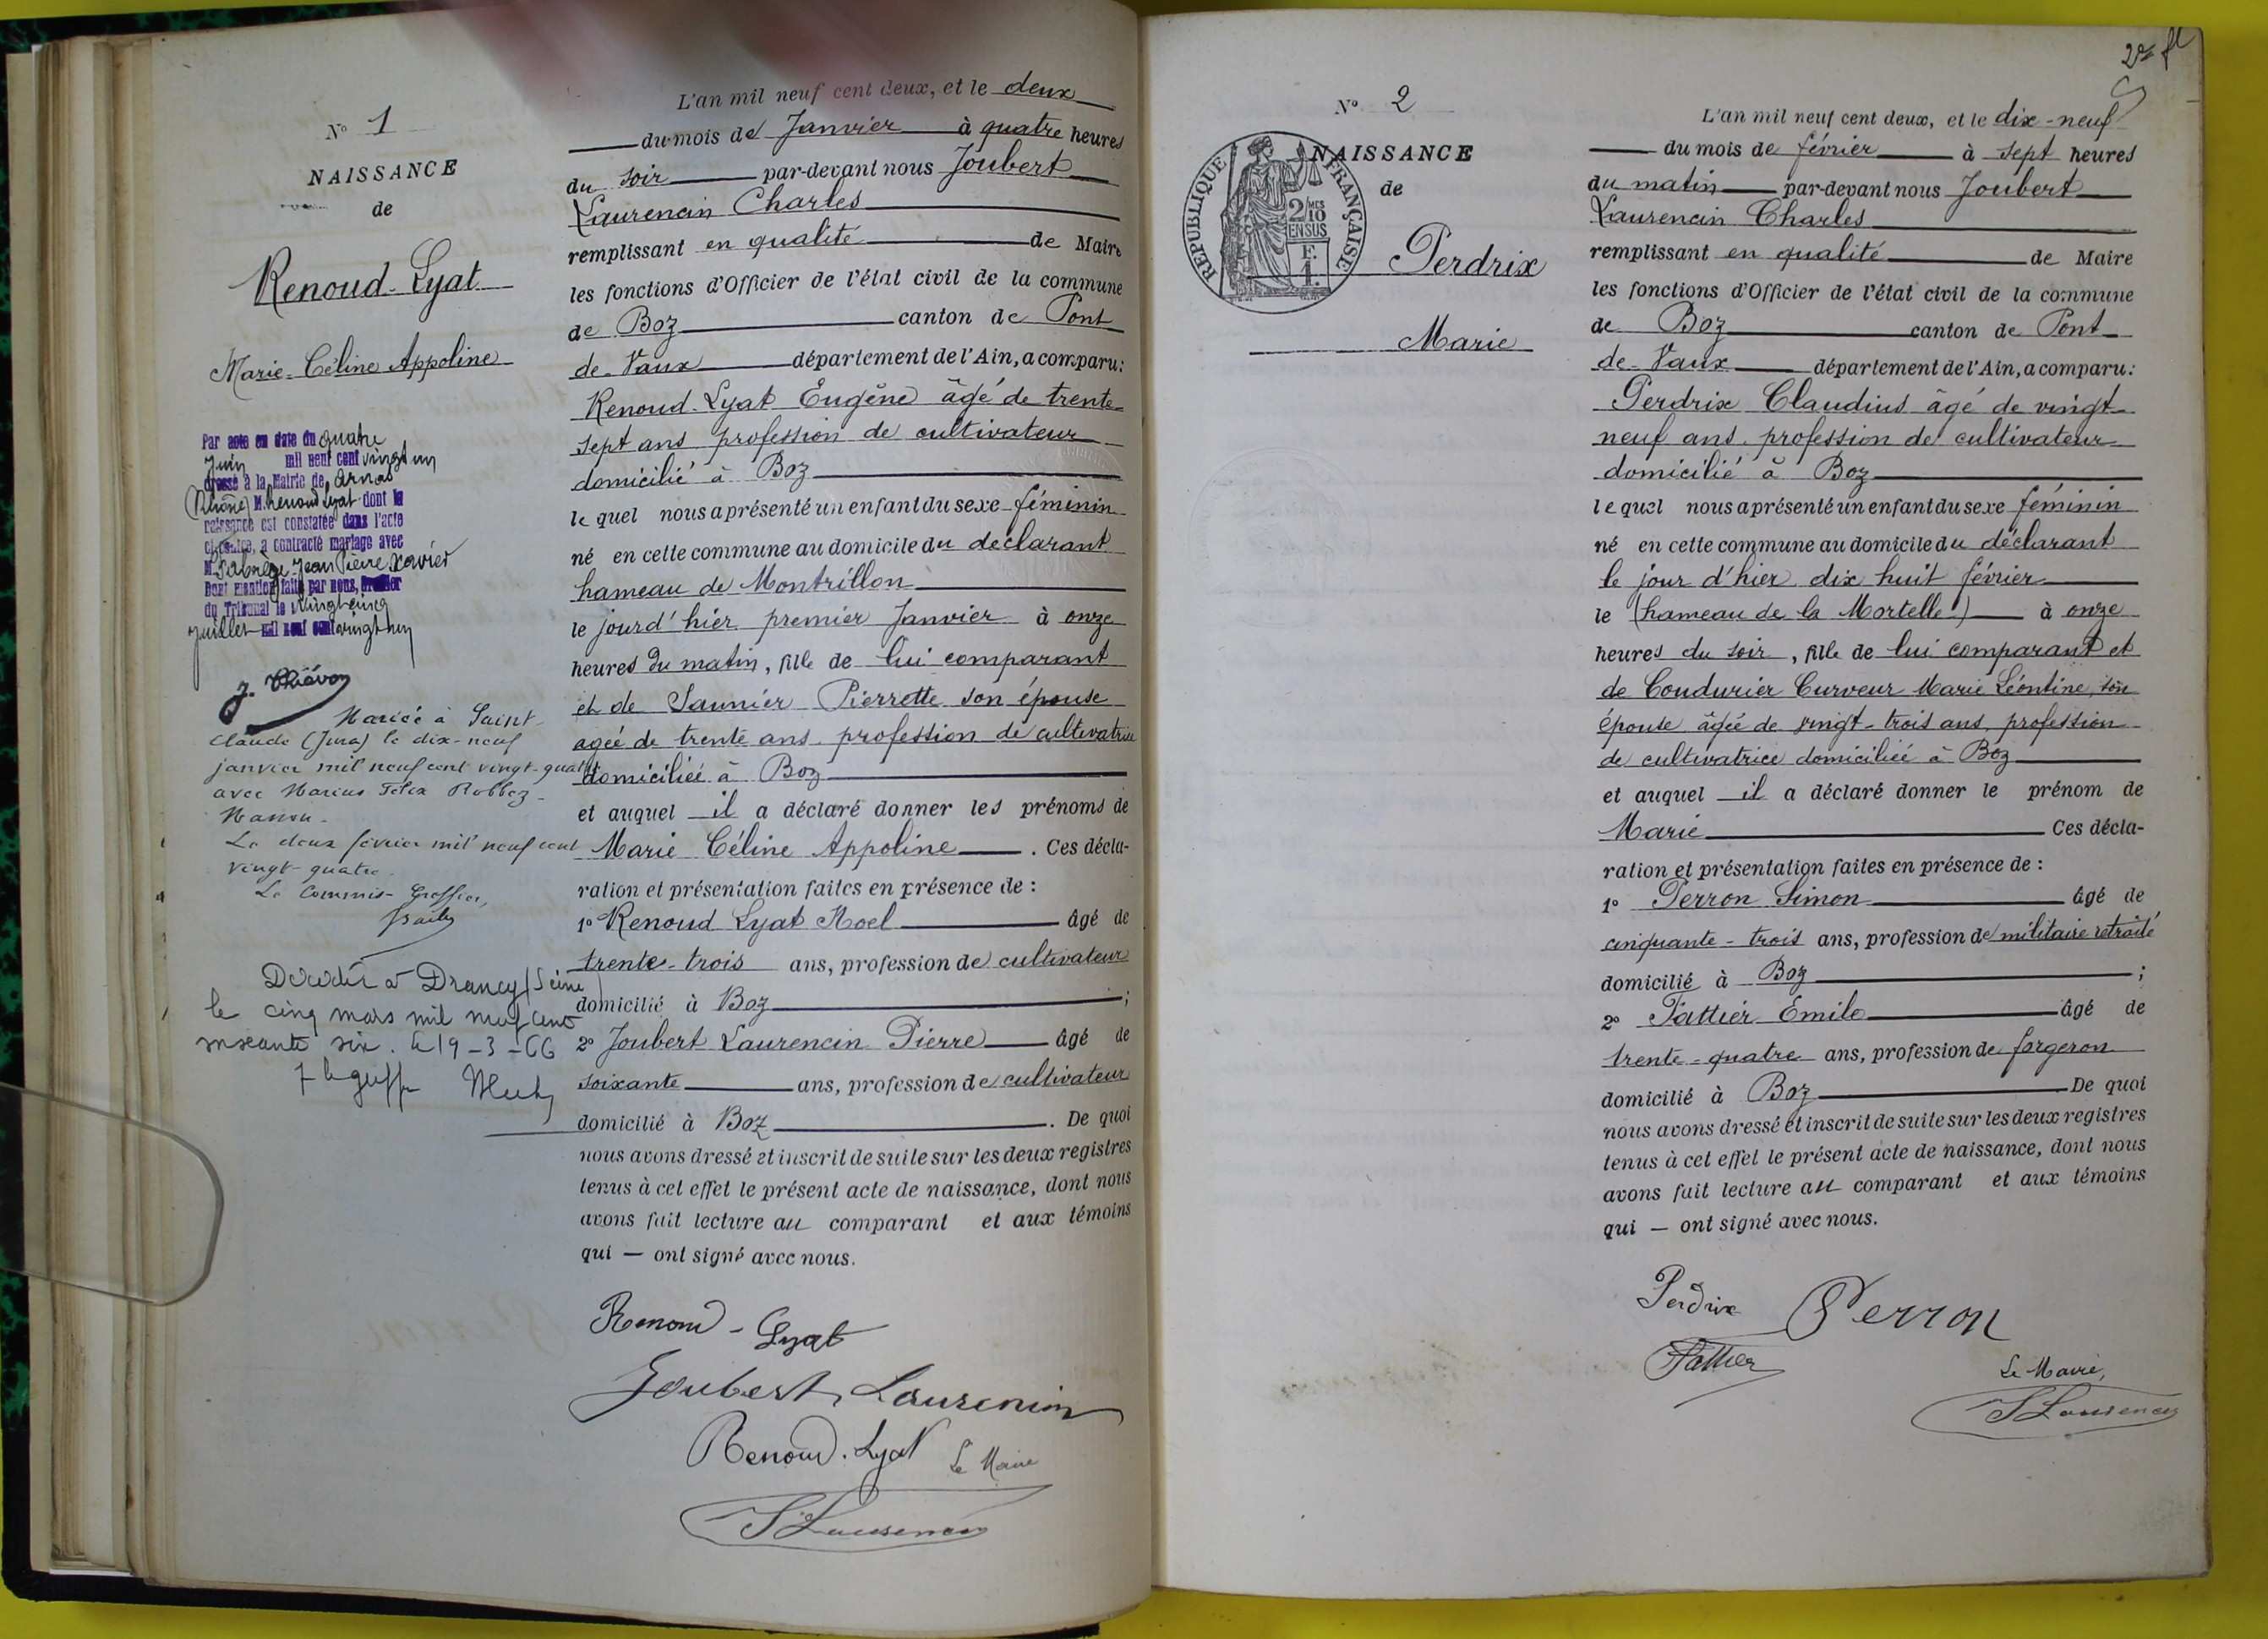 N° 1
NAISSANCE
de
Renoud-Lyat
Marie-Céline Appoline
Par acte en date du quatre
Juin mil neuf cent vingt un
dressé à la Mairie de Arnas
(Rhône) M. Renoud Lyat dont la
naissance est constatée dans l'acte
ci-contre, a contracté mariage avec
M. Jean Pierre Xavier
Dont mention faite par nous, Greffier
du Tribunal le vingt cinq
Juillet mil neuf cent vingt un
J. Thiévon
Mariée à Saint-
Claude (Jura) le dix-neuf
janvier mil neuf cent vingt-quatre
avec Marius Felix Robbez-
Masson.
Le deux février mil neuf cent
vingt-quatre.
Le Commis-Greffier,
Décédée à Drancy (Seine)
le cinq mars mil neuf cent
soixante six. Le 19-3-66
L'an mil neuf cent deux, et le deux
du mois de Janvier à quatre heures
du soir par-devant nous Joubert
Laurencin Charles
remplissant en qualité de Maire
les fonctions d'Officier de l'état civil de la commune
de Boz canton de Pont
de-Vaux département de l'Ain, a comparu:
Renoud-Lyat Eugène âgé de trente-
sept ans profession de cultivateur
domicilié à Boz
lequel nous a présenté un enfant du sexe féminin
né en cette commune au domicile du déclarant
hameau de Montrillon
le jour d'hier premier Janvier à onze
heures du matin, fille de lui comparant
et de Saunier Pierrette son épouse
agée de trente ans profession de cultivatrice
domiciliée à Boz
et auquel il a déclaré donner les prénoms de
Marie Céline Appoline . Ces décla-
ration et présentation faites en présence de :
1° Renoud Lyat Noel âgé de
trente-trois ans, profession de cultivateur
domicilié à Boz ;
2° Joubert Laurencin Pierre âgé de
soixante ans, profession de cultivateur
domicilié à Boz . De quoi
nous avons dressé et inscrit de suite sur les deux registres
tenus à cet effet le présent acte de naissance, dont nous
avons fait lecture au comparant et aux témoins
qui — ont signé avec nous.
Renoud-Lyat
Joubert Laurencin
Renoud-Lyat Le Maire
JLaurencin
2e ft
N° 2
NAISSANCE
de
RÉPUBLIQUE FRANÇAISE
2/10 MES
EN SUS
F.
1.
Perdrix
Marie
L'an mil neuf cent deux, et le dix-neuf
du mois de février à sept heures
du matin par-devant nous Joubert
Laurencin Charles
remplissant en qualité de Maire
les fonctions d'Officier de l'état civil de la commune
de Boz canton de Pont
de-Vaux département de l'Ain, a comparu:
Perdrix Claudius âgé de vingt
neuf ans profession de cultivateur
domicilié à Boz
lequel nous a présenté un enfant du sexe féminin
né en cette commune au domicile du déclarant
le jour d'hier dix huit février
le (hameau de la Mortelle) à onze
heures du soir , fille de lui comparant et
de Coudurier Curveur Marie Léontine, son
épouse âgée de vingt-trois ans, profession
de cultivatrice domiciliée à Boz
et auquel il a déclaré donner le prénom de
Marie Ces décla-
ration et présentation faites en présence de :
1° Perron Simon âgé de
cinquante-trois ans, profession de militaire retraité
domicilié à Boz ;
2° Pattier Emile âgé de
trente-quatre ans, profession de forgeron
domicilié à Boz De quoi
nous avons dressé et inscrit de suite sur les deux registres
tenus à cet effet le présent acte de naissance, dont nous
avons fait lecture au comparant et aux témoins
qui — ont signé avec nous.
Perdrix Perron
Pattier
Le Maire,
JLaurencin